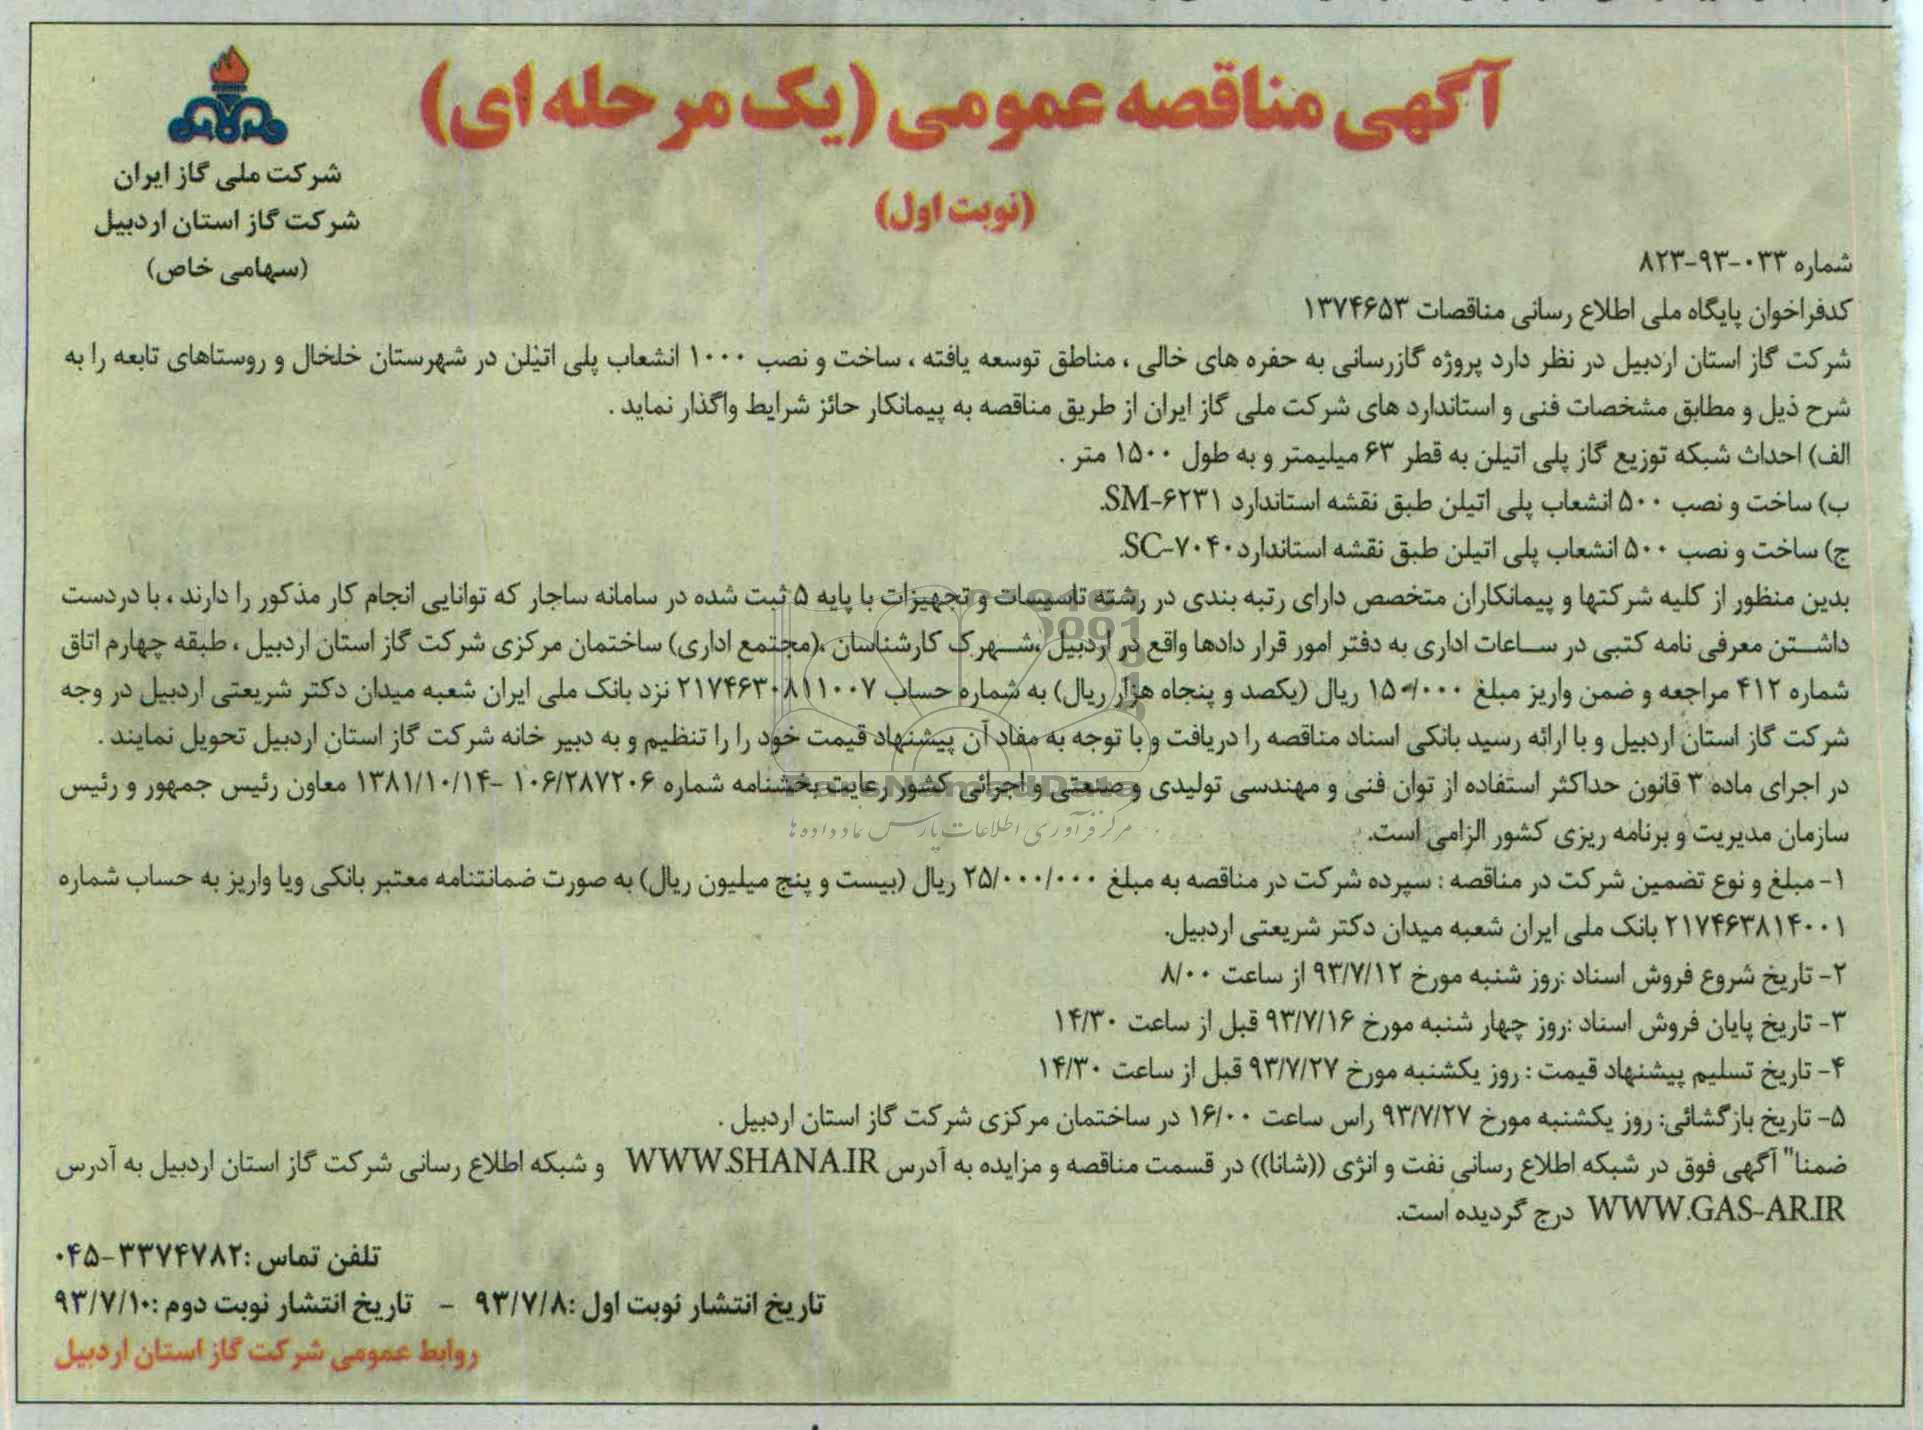 آگهی مناقصه عمومی (یک مرحله ای)
(نوبت اول)
شرکت ملی گاز ایران
شرکت گاز استان اردبیل
(سهامی خاص)
شماره ۰۳۳-۹۳-۸۲۳
کدفراخوان پایگاه ملی اطلاع رسانی مناقصات ۱۳۷۴۶۵۳
شرکت گاز استان اردبیل در نظر دارد پروژه گازرسانی به حفره های خالی ، مناطق توسعه یافته ، ساخت و نصب ۱۰۰۰ انشعاب پلی اتیلن در شهرستان خلخال و روستاهای تابعه را به
شرح ذیل و مطابق مشخصات فنی و استاندارد های شرکت ملی گاز ایران از طریق مناقصه به پیمانکار حائز شرایط واگذار نماید .
الف) احداث شبکه توزیع گاز پلی اتیلن به قطر ۶۳ میلیمتر و به طول ۱۵۰۰ متر .
ب) ساخت و نصب ۵۰۰ انشعاب پلی اتیلن طبق نقشه استاندارد SM-۶۲۳۱.
ج) ساخت و نصب ۵۰۰ انشعاب پلی اتیلن طبق نقشه استاندارد SC-۷۰۴۰.
بدین منظور از کلیه شرکتها و پیمانکاران متخصص دارای رتبه بندی در رشته تاسیسات و تجهیزات با پایه ۵ ثبت شده در سامانه ساجار که توانایی انجام کار مذکور را دارند ، با دردست
داشتن معرفی نامه کتبی در ساعات اداری به دفتر امور قرار دادها واقع در اردبیل ،شهرک کارشناسان ،(مجتمع اداری) ساختمان مرکزی شرکت گاز استان اردبیل ، طبقه چهارم اتاق
شماره ۴۱۲ مراجعه و ضمن واریز مبلغ ۱۵۰/۰۰۰ ریال (یکصد و پنجاه هزار ریال) به شماره حساب ۲۱۷۴۶۳۰۸۱۱۰۰۷ نزد بانک ملی ایران شعبه میدان دکتر شریعتی اردبیل در وجه
شرکت گاز استان اردبیل و با ارائه رسید بانکی اسناد مناقصه را دریافت و با توجه به مفاد آن پیشنهاد قیمت خود را را تنظیم و به دبیر خانه شرکت گاز استان اردبیل تحویل نمایند .
در اجرای ماده ۳ قانون حداکثر استفاده از توان فنی و مهندسی تولیدی و صنعتی و اجرائی کشور رعایت بخشنامه شماره ۱۰۶/۲۸۷۲۰۶ -۱۳۸۱/۱۰/۱۴ معاون رئیس جمهور و رئیس
سازمان مدیریت و برنامه ریزی کشور الزامی است.
مرکز فرآوری اطلاعات پارس نماد داده ها
۱- مبلغ و نوع تضمین شرکت در مناقصه : سپرده شرکت در مناقصه به مبلغ ۲۵/۰۰۰/۰۰۰ ریال (بیست و پنج میلیون ریال) به صورت ضمانتنامه معتبر بانکی ویا واریز به حساب شماره
۲۱۷۴۶۳۸۱۴۰۰۱ بانک ملی ایران شعبه میدان دکتر شریعتی اردبیل.
۲- تاریخ شروع فروش اسناد :روز شنبه مورخ ۹۳/۷/۱۲ از ساعت ۸/۰۰
۳- تاریخ پایان فروش اسناد :روز چهار شنبه مورخ ۹۳/۷/۱۶ قبل از ساعت ۱۴/۳۰
۴- تاریخ تسلیم پیشنهاد قیمت : روز یکشنبه مورخ ۹۳/۷/۲۷ قبل از ساعت ۱۴/۳۰
۵- تاریخ بازگشائی: روز یکشنبه مورخ ۹۳/۷/۲۷ راس ساعت ۱۶/۰۰ در ساختمان مرکزی شرکت گاز استان اردبیل .
ضمنا" آگهی فوق در شبکه اطلاع رسانی نفت و انژی ((شانا)) در قسمت مناقصه و مزایده به آدرس WWW.SHANA.IR و شبکه اطلاع رسانی شرکت گاز استان اردبیل به آدرس
WWW.GAS-AR.IR درج گردیده است.
تلفن تماس :۳۳۷۴۷۸۲-۰۴۵
تاریخ انتشار نوبت اول :۹۳/۷/۸ - تاریخ انتشار نوبت دوم :۹۳/۷/۱۰
روابط عمومی شرکت گاز استان اردبیل